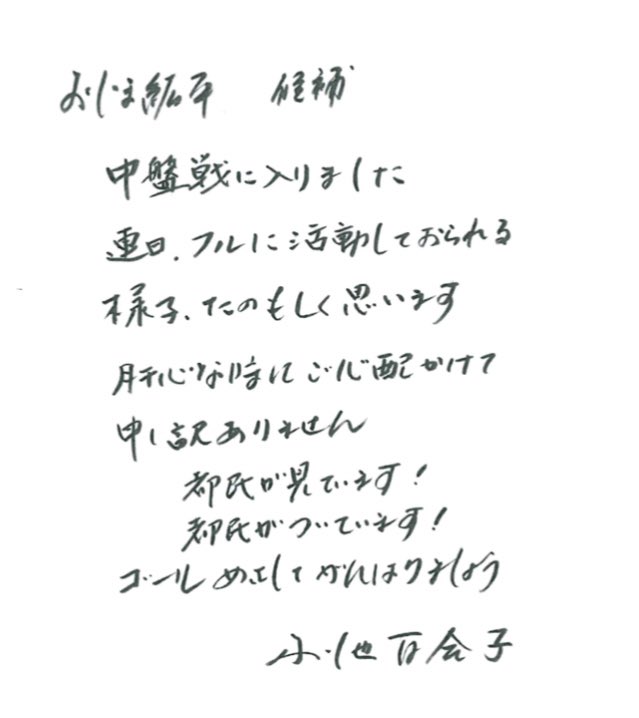 おじま紘平 候補
中盤戦に入りました
連日、フルに活動しておられる
様子、たのもしく思います
肝心な時にご心配かけて
申し訳ありません
都民が見ています!
都民がついています!
ゴールめざしてがんばりましょう
小池百合子